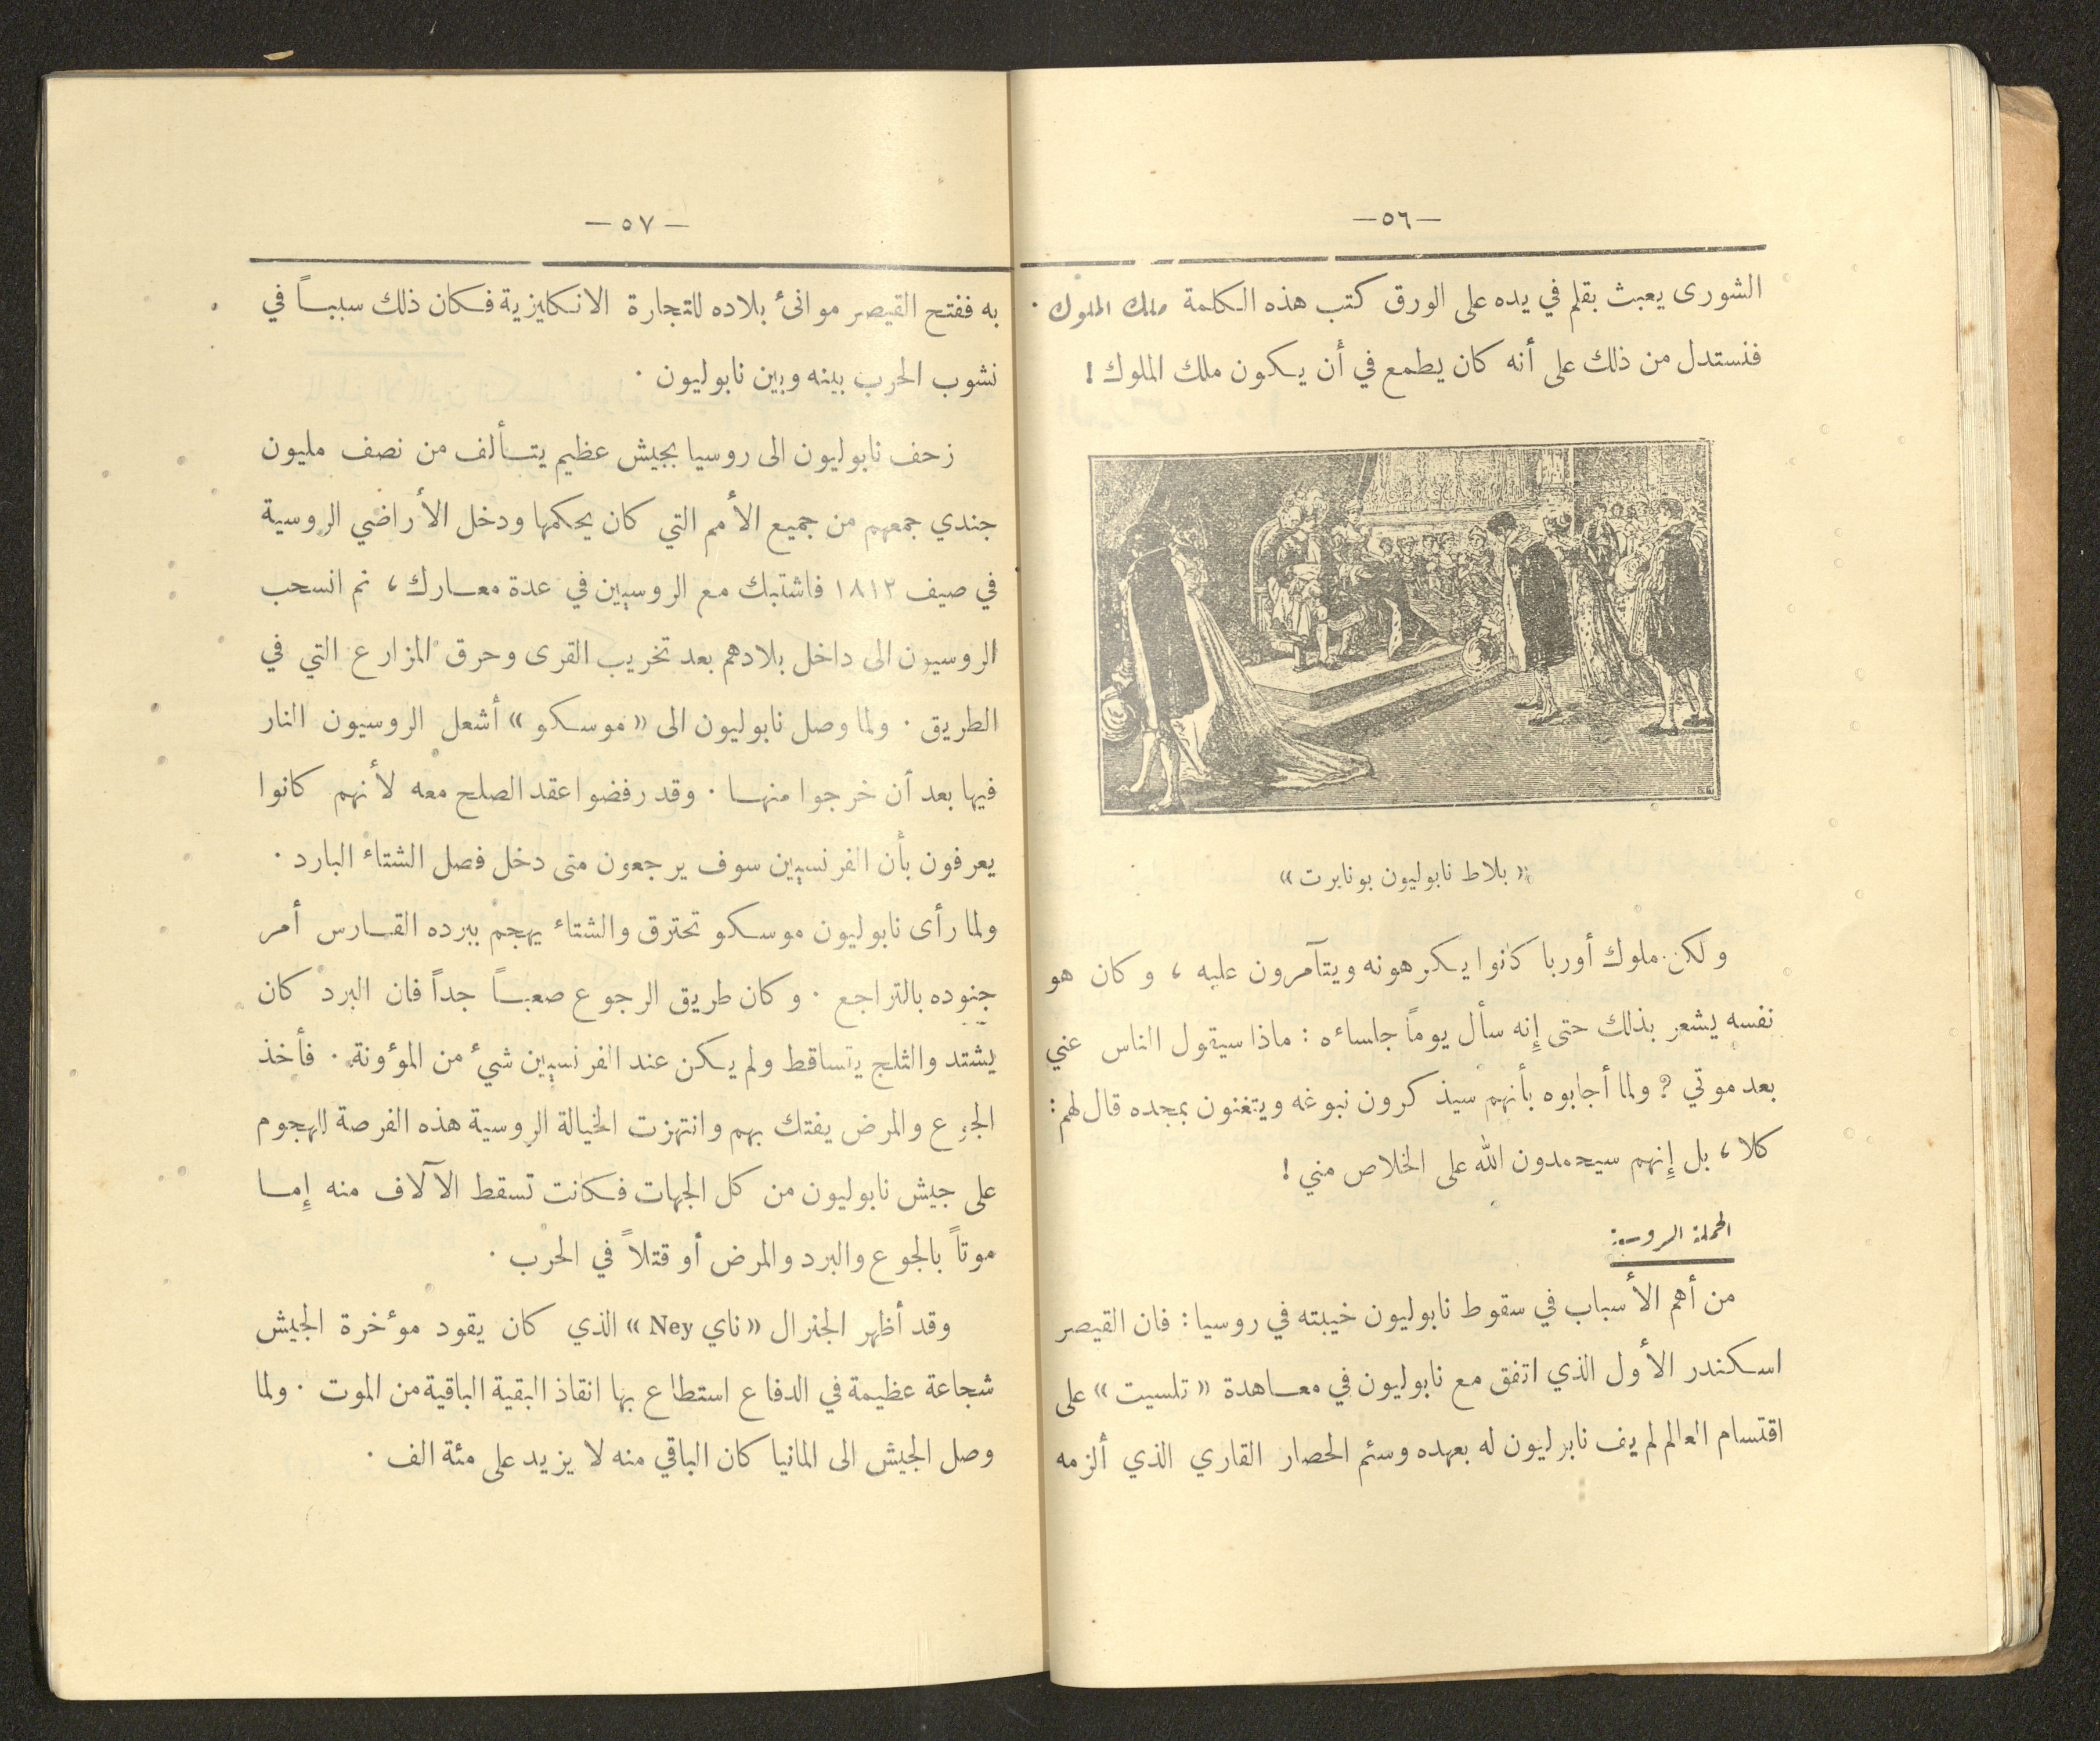 —٥٦—
الشورى يعبث بقلم في يده على الورق كتب هذه الكلمة ملك الملوك ·
فنستدل من ذلك على أنه كان يطمع في أن يكون ملك الملوك !
« بلاط نابوليون بونابرت »
ولكن ملوك أوربا كانوا يكرهونه ويتآمرون عليه ، وكان هو
نفسه يشعر بذلك حتى إِنه سأل يوماً جلساءه : ماذا سيقول الناس عني
بعد موتي ? ولما أجابوه بأنهم سيذكرون نبوغه ويتغنون بمجده قال لهم :
كلا ، بل إِنهم سيحمدون الله على الخلاص مني !
الحملة الروسية :
من أهم الأسباب في سقوط نابوليون خيبته في روسيا : فان القيصر
اسكندر الأول الذي اتفق مع نابوليون في معاهدة « تلسيت » على
اقتسام العالم لم يف نابوليون له بعهده وسئم الحصار القاري الذي ألزمه
— ٥٧ —
به ففتح القيصر موانئ بلاده للتجارة الانكليزية فكان ذلك سبباً في
نشوب الحرب بينه وبين نابوليون ·
زحف نابوليون الى روسيا بجيش عظيم يتألف من نصف مليون
جندي جمعهم من جميع الأمم التي كان يحكمها ودخل الأراضي الروسية
في صيف ١٨١٢ فاشتبك مع الروسيين في عدة معارك ، ثم انسحب
الروسيون الى داخل بلادهم بعد تخريب القرى وحرق المزارع التي في
الطريق · ولما وصل نابوليون الى « موسكو » أشعل الروسيون النار
فيها بعد أن خرجوا منها · وقد رفضوا عقد الصلح معه لأنهم كانوا
يعرفون بأن الفرنسيين سوف يرجعون متى دخل فصل الشتاء البارد ·
ولما رأى نابوليون موسكو تحترق والشتاء يهجم ببرده القارس أمر
جنوده بالتراجع · وكان طريق الرجوع صعباً جداً فان البرد كان
يشتد والثلج يتساقط ولم يكن عند الفرنسيين شيء من المؤونة · فأخذ
الجوع والمرض يفتك بهم وانتهزت الخيالة الروسية هذه الفرصة للهجوم
على جيش نابوليون من كل الجهات فكانت تسقط الآلاف منه إِما
موتاً بالجوع والبرد والمرض أو قتلاً في الحرب ·
وقد أظهر الجنرال « ناي Ney » الذي كان يقود مؤخرة الجيش
شجاعة عظيمة في الدفاع استطاع بها انقاذ البقية الباقية من الموت · ولما
وصل الجيش الى المانيا كان الباقي منه لا يزيد على مئة الف ·